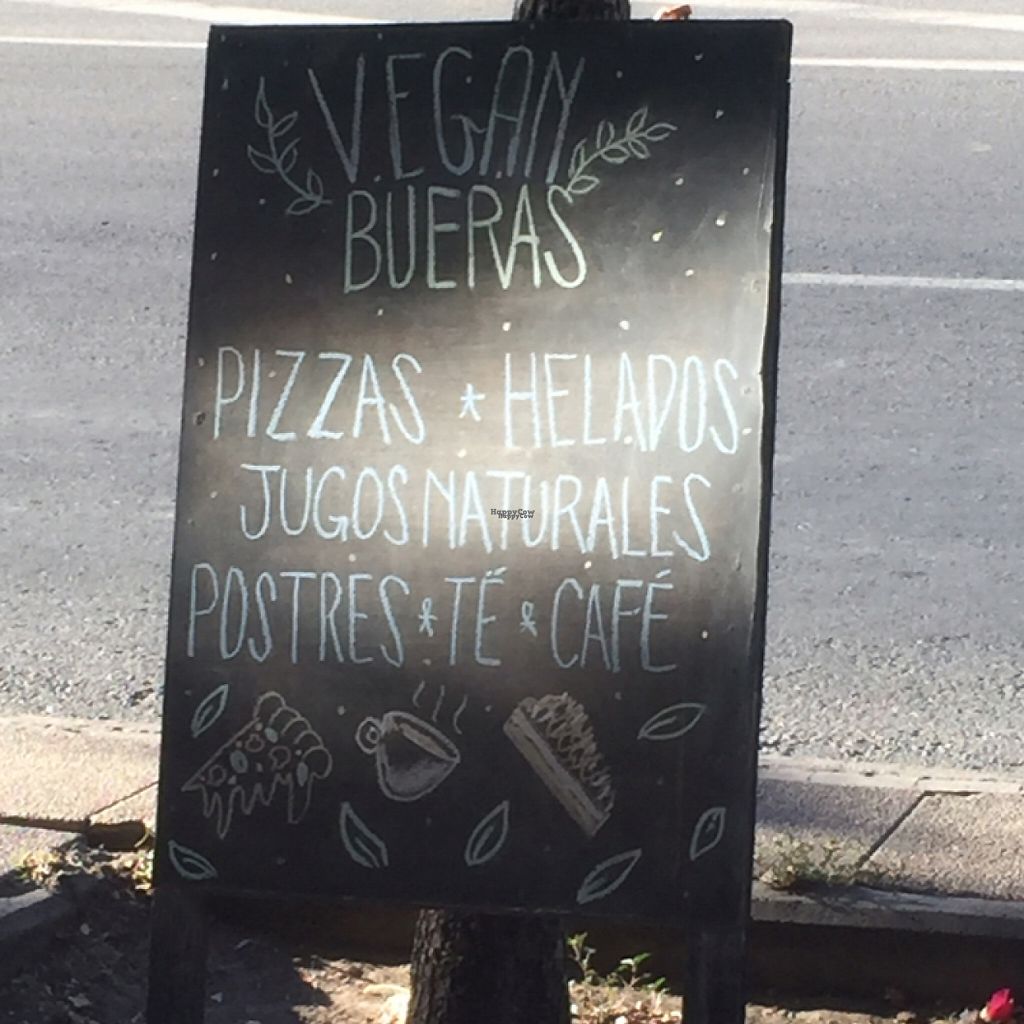 VEGAN
BUERAS
PIZZAS * HELADOS
JUGOS NATURALES
POSTRES * TÉ & CAFÉ
HappyCow
HappyCow